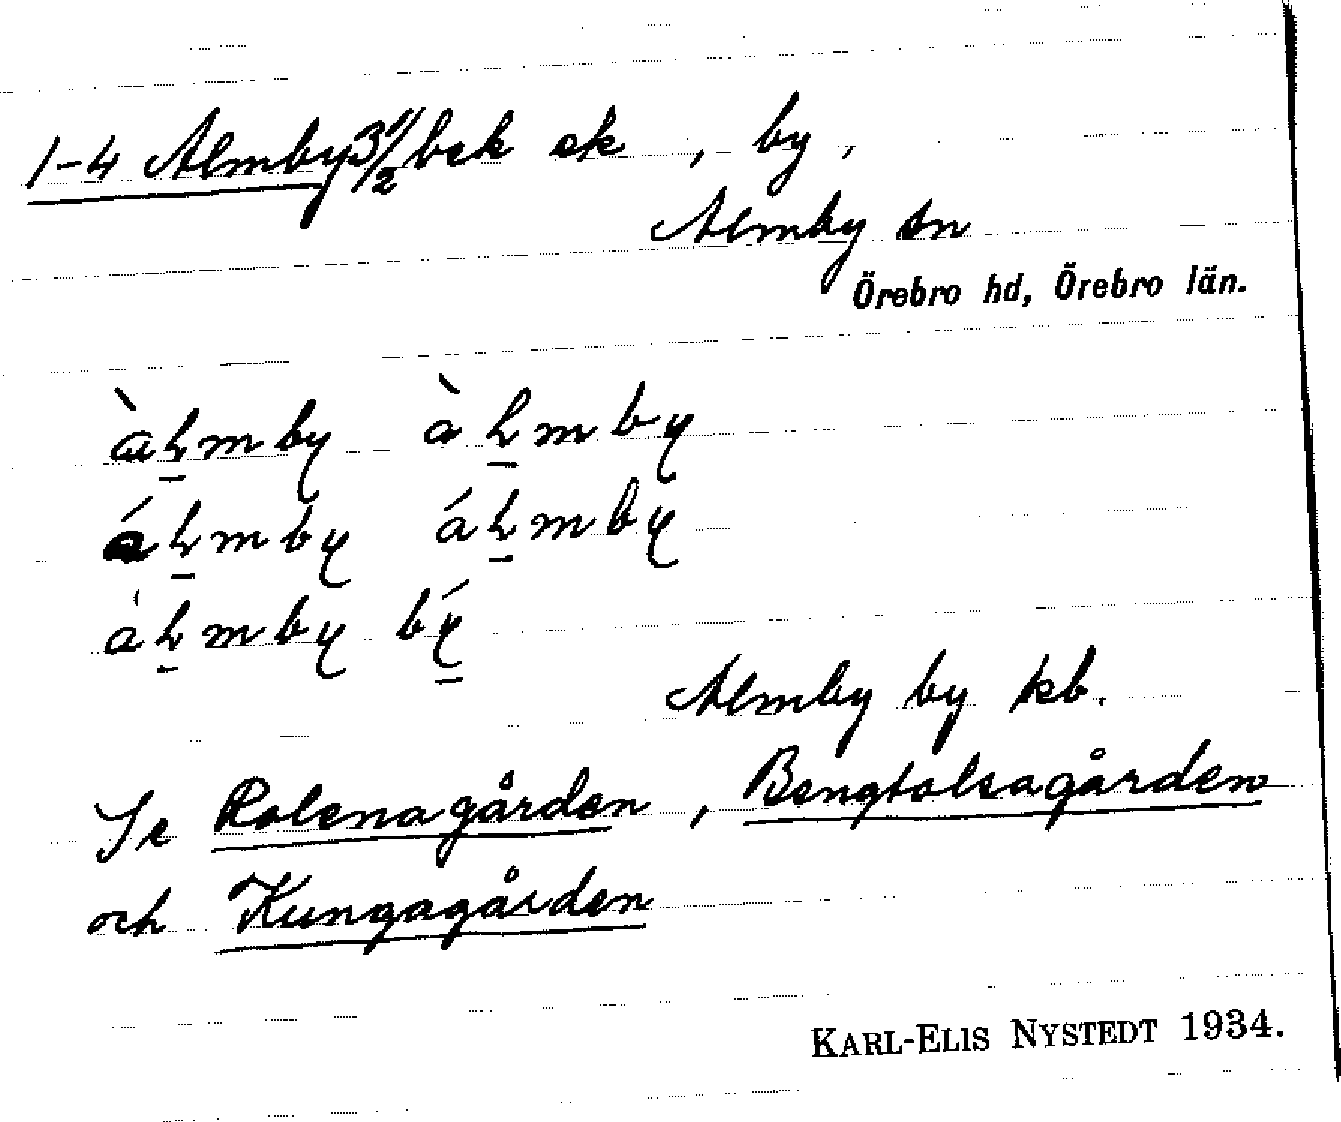 1-4 Almby 3 1/2 bsk sk , by ,
Almby sn
Örebro hd, Örebro län.
àḻmby àḻmby
áḻmby áḻmby
àḻmby bý
Almby by kb.
Se Rolsnagården , Bengtolsagården
och Kungagården
KARL-ELIS NYSTEDT 1934.